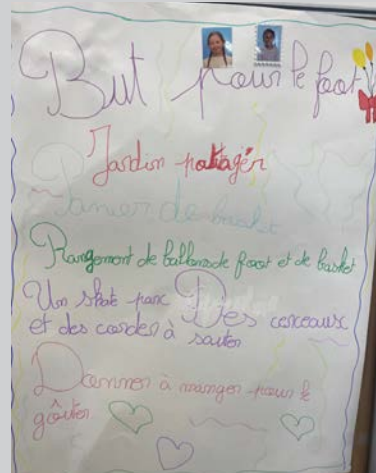 But pour le foot
Jardin potager
Panier de basket
Rangement de ballons de foot et de basket
Un skate parc Des cerceaux
et des cordes à sauter
Donner à manger pour le
goûter